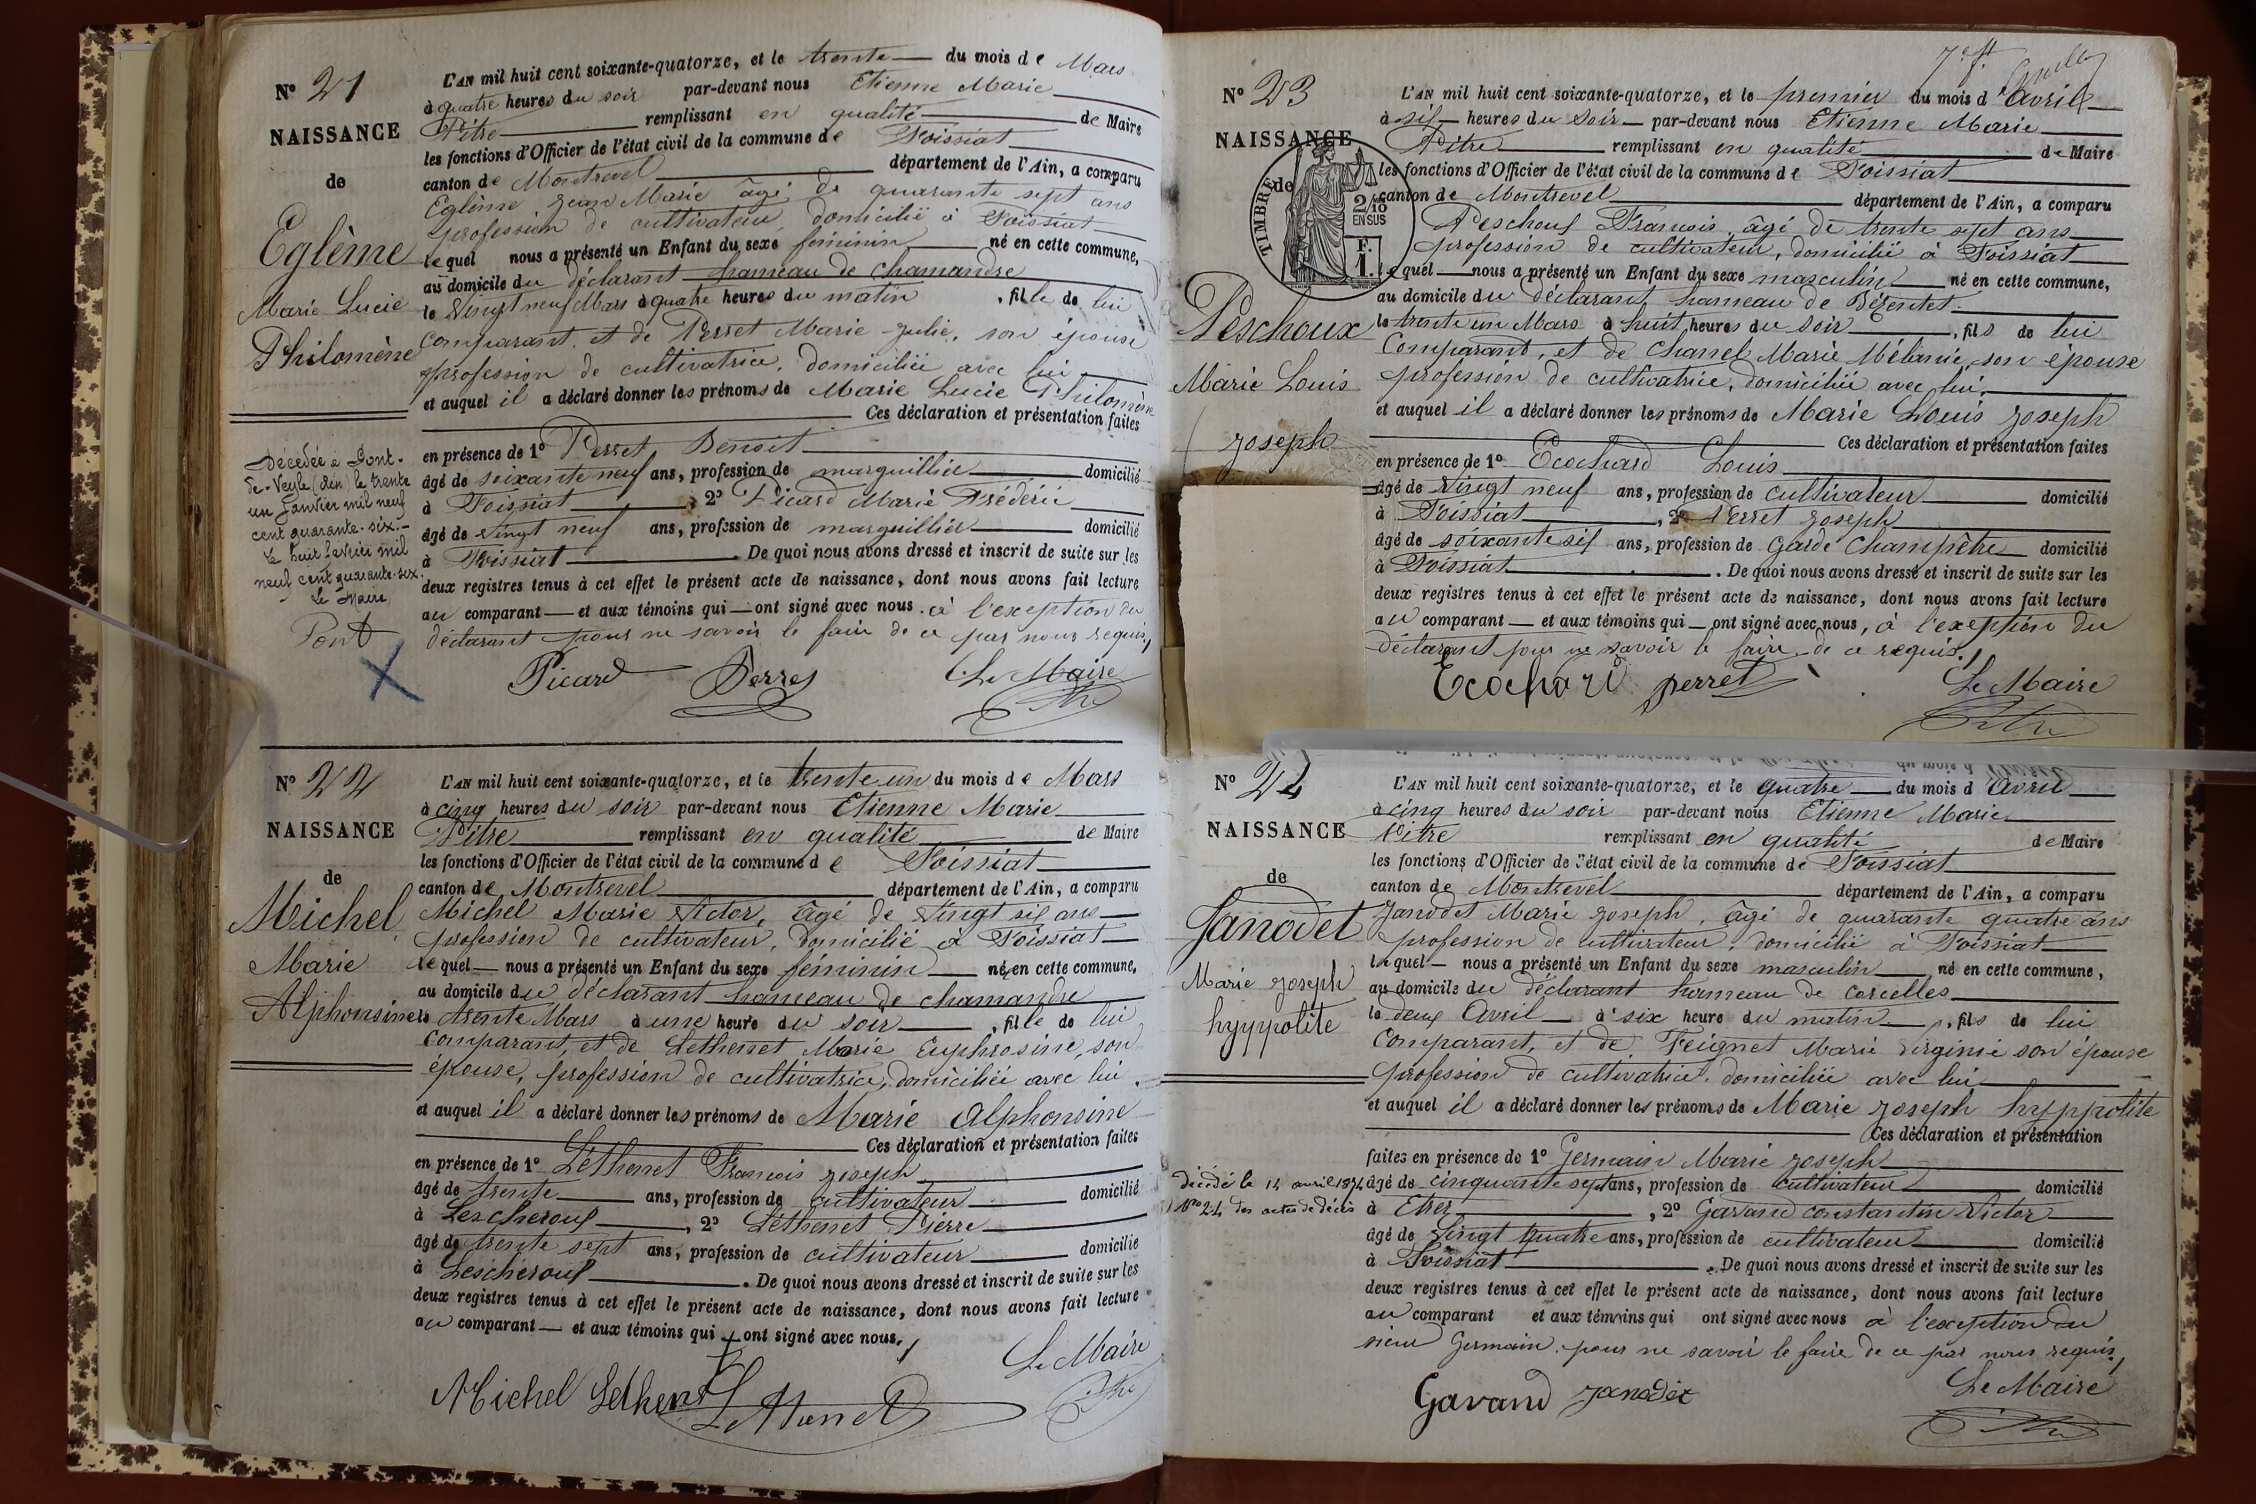 N° 21
NAISSANCE
de
Eglème
Marie Lucie
Philomène
Décédée à Pont-
de-Veyle (Ain) le trente
un Janvier mil neuf
cent quarante-six.-
Le huit février mil
neuf cent quarante-six.
Le Maire
Pont
L'AN mil huit cent soixante-quatorze, et le trente du mois de Mars
à quatre heures du soir par-devant nous Etienne Marie
Pitre remplissant en qualité de Maire
les fonctions d'Officier de l'état civil de la commune de Foissiat
canton de Montrevel département de l'Ain, a comparu
Eglème Jean Marie âgé de quarante sept ans
profession de cultivateur, domicilié à Foissiat
lequel nous a présenté un Enfant du sexe féminin né en cette commune,
au domicile du déclarant hameau de Chamandre
le Vingt neuf Mars à quatre heures du matin, fille de lui
comparant, et de Perret Marie Julie, son épouse
profession de cultivatrice, domiciliée avec lui
et auquel il a déclaré donner les prénoms de Marie Lucie Philomène
Ces déclaration et présentation faites
en présence de 1° Perret Benoit
âgé de soixante neuf ans, profession de marguillier domicilié
à Foissiat, 2° Picard Marie Frédéric
âgé de Vingt neuf ans, profession de marguillier domicilié
à Foissiat. De quoi nous avons dressé et inscrit de suite sur les
deux registres tenus à cet effet le présent acte de naissance, dont nous avons fait lecture
au comparant et aux témoins qui ont signé avec nous. à l'exception du
déclarant pour ne savoir le faire de ce par nous requis,
Picard Perret Le Maire
Pitre
N° 22
NAISSANCE
de
Michel
Marie
Alphonsine
L'AN mil huit cent soixante-quatorze, et le trente un du mois de Mars
à cinq heures du soir par-devant nous Etienne Marie
Pitre remplissant en qualité de Maire
les fonctions d'Officier de l'état civil de la commune de Foissiat
canton de Montrevel département de l'Ain, a comparu
Michel Marie Victor, âgé de Vingt six ans
profession de cultivateur, domicilié à Foissiat
lequel nous a présenté un Enfant du sexe féminin né en cette commune,
au domicile du déclarant hameau de chamandre
le trente Mars à une heure du soir, fille de lui
comparant, et de Lethenet Marie Euphrosine, son
épouse, profession de cultivatrice, domiciliée avec lui.
et auquel il a déclaré donner les prénoms de Marie Alphonsine
Ces déclaration et présentation faites
en présence de 1° Léthenet François Joseph
âgé de trente ans, profession de cultivateur domicilié
à Lescheroux, 2° Léthenet Pierre
âgé de trente sept ans, profession de cultivateur domicilié
à Lescheroux. De quoi nous avons dressé et inscrit de suite sur les
deux registres tenus à cet effet le présent acte de naissance, dont nous avons fait lecture
au comparant et aux témoins qui ont signé avec nous,
Le Maire
Michel Lethenet Pitre
N° 23
NAISSANCE
de
TIMBRE
2/10
EN SUS
F.
1.
Peschoux
Marie Louis
Joseph
7e ft
L'AN mil huit cent soixante-quatorze, et le premier du mois d'Avril
à six heures du soir par-devant nous Etienne Marie
Pitre remplissant en qualité de Maire
les fonctions d'Officier de l'état civil de la commune de Foissiat
canton de Montrevel département de l'Ain, a comparu
Peschoux François, âgé de trente sept ans
profession de cultivateur, domicilié à Foissiat
lequel nous a présenté un Enfant du sexe masculin né en cette commune,
au domicile du déclarant hameau de Bézentet
le trente un Mars à huit heures du soir, fils de lui
Comparant, et de Chanel Marie Mélanie, son épouse
profession de cultivatrice, domiciliée avec lui
et auquel il a déclaré donner les prénoms de Marie Louis Joseph
Ces déclaration et présentation faites
en présence de 1° Ecochard Louis
âgé de Vingt neuf ans, profession de cultivateur domicilié
à Foissiat, 2° Perret Joseph
âgé de soixante six ans, profession de Garde Champêtre domicilié
à Foissiat. De quoi nous avons dressé et inscrit de suite sur les
deux registres tenus à cet effet le présent acte de naissance, dont nous avons fait lecture
au comparant et aux témoins qui ont signé avec nous, à l'exception du
déclarant pour ne savoir le faire de ce requis,
Ecochard perret Le Maire
Pitre
N° 24
NAISSANCE
de
Janodet
Marie Joseph
hyppolite
décédé le 14 avril 1874
No 24 des actes de décès
L'AN mil huit cent soixante-quatorze, et le quatre du mois d'Avril
à cinq heures du soir par-devant nous Etienne Marie
Pitre remplissant en qualité de Maire
les fonctions d'Officier de l'état civil de la commune de Foissiat
canton de Montrevel département de l'Ain, a comparu
Janodet Marie Joseph, âgé de quarante quatre ans
profession de cultivateur, domicilié à Foissiat
lequel nous a présenté un Enfant du sexe masculin né en cette commune,
au domicile du déclarant hameau de corcelles
le deux Avril à six heure du matin, fils de lui
Comparant, et de Feignet Marie Virginie son épouse
profession de cultivatrice, domiciliée avec lui
et auquel il a déclaré donner les prénoms de Marie Joseph hyppolite
Ces déclaration et présentation
faites en présence de 1° Germain Marie Joseph
âgé de cinquante sept ans, profession de cultivateur domicilié
à Etrez, 2° Gavand constantin Victor
âgé de Vingt quatre ans, profession de cultivateur domicilié
à Foissiat. De quoi nous avons dressé et inscrit de suite sur les
deux registres tenus à cet effet le présent acte de naissance, dont nous avons fait lecture
au comparant et aux témoins qui ont signé avec nous à l'exception du
sieur Germain, pour ne savoir le faire de ce par nous requis,
Gavand Janodet Le Maire
Pitre